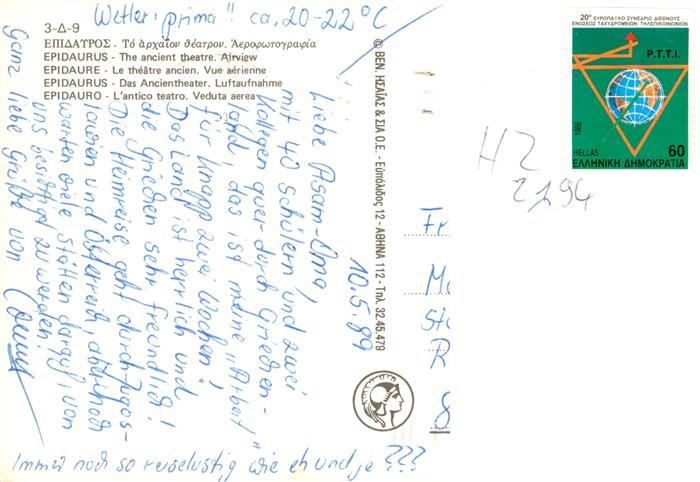 Wetter: prima!! ca. 20-22°C
3-Δ-9
ΕΠΙΔΑΥΡΟΣ - Τό ἀρχαῖον θέατρον. Ἀεροφωτογραφία
EPIDAURUS - The ancient theatre. Airview
EPIDAURE - Le théâtre ancien. Vue aérienne
EPIDAURUS - Das Ancientheater. Luftaufnahme
EPIDAURO - L'antico teatro. Veduta aerea
10.5.89
Liebe Asam-Oma,
mit 40 Schülern und zwei
Kollegen quer durch Griechen-
land, das ist meine "Arbeit"
für knapp zwei Wochen!
Das Land ist herrlich und
die Griechen sehr freundlich!
Die Heimreise geht durch Jugos-
lawien und Österreich, doch
warten viele Stätten darauf, von
uns besichtigt zu werden.
Ganz liebe Grüße von
Immer noch so reiselustig wie eh und je???
© ΒΕΝ. ΗΣΑΪΑΣ & ΣΙΑ Ο.Ε. - Εὐπόλιδος 12 - ΑΘΗΝΑ 112 - Τηλ. 32.45.479
20º ΕΥΡΩΠΑΪΚΟ ΣΥΝΕΔΡΙΟ ΔΙΕΘΝΟΥΣ
ΕΝΩΣΕΩΣ ΤΑΧΥΔΡΟΜΕΙΩΝ ΤΗΛΕΠΙΚΟΙΝΩΝΙΩΝ
P.T.T.I.
1988
HELLAS 60
ΕΛΛΗΝΙΚΗ ΔΗΜΟΚΡΑΤΙΑ
HZ
2194
Fr
Ma
Sta
R
8